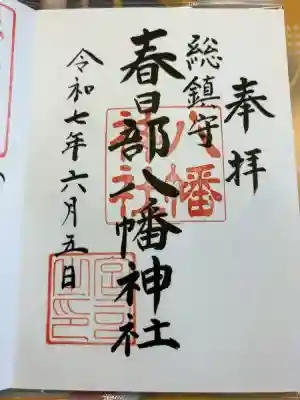 奉拝
総鎮守
春日部八幡神社
令和七年六月五日
八幡
神社